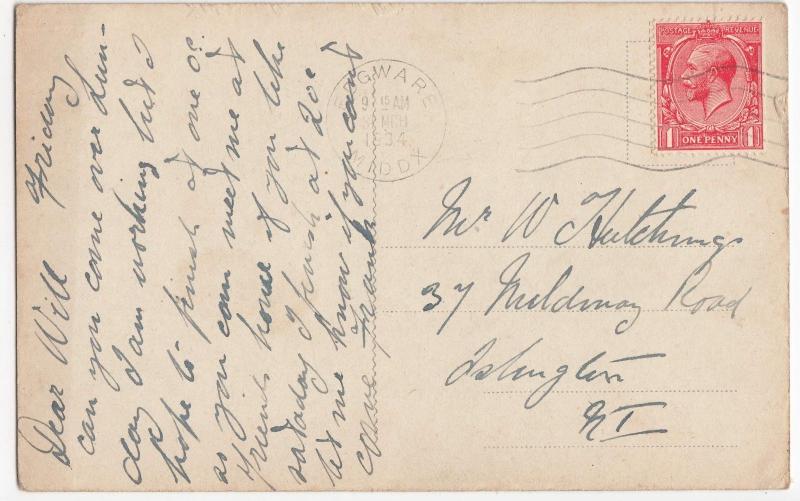 Dear Will Friday
can you come over Sun-
day I am working but I
hope to finish at one oc
as you can meet me at
friends house if you like
satarday I finish at 2oc
let me know if you cant
Frank
EDGWARE
9 15 AM
MCH
1934
MIDDX
POSTAGE REVENUE
1 ONE PENNY 1
Mr W Hutchings
37 Mildmay Road
Islington
N1